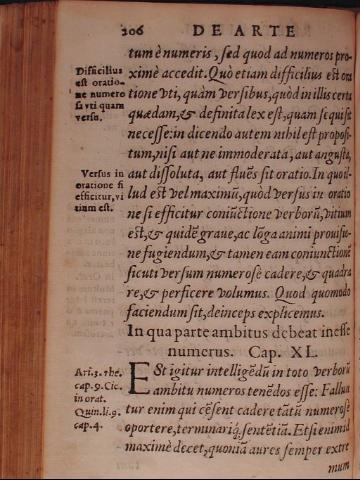 206 DE ARTE
tum è numeris, sed quod ad numeros pro-
ximè accedit. Quò etiam difficilius est ora
tione vti, quàm versibus, quòd in illis certa
quædam, & definita lex est, quam sequi sit
necesse: in dicendo autem nihil est proposi-
tum, nisi aut ne immoderata, aut angusta,
aut dissoluta, aut fluẽs sit oratio. In quo il-
lud est vel maximũ, quòd versus in oratio
ne si efficitur coniũctione verborũ, vitium
est, & quidẽ graue, ac lõga animi prouisio-
ne fugiendum, & tamen eam coniunctionẽ
sicuti versum numerosè cadere, & quadra
re, & perficere volumus. Quod quomodo
faciendum sit, deinceps explicemus.
Difficilius
est oratio-
ne numero
sa vti quam
versu.
Versus in
oratione si
efficitur, vi
tium est.
In qua parte ambitus debeat inesse
numerus. Cap. XL.
ESt igitur intelligẽdũ in toto verborũ
ambitu numeros tenẽdos esse: Fallũtur
tur enim qui cẽsent cadere tãtũ numerosè
oportere, terminariq́; sentẽtiã. Etsi enim id
maximè decet, quoniã aures semper extre
mum
Ari.3. rhe.
cap.9. Cic.
in orat.
Quin.li.9.
cap.4.